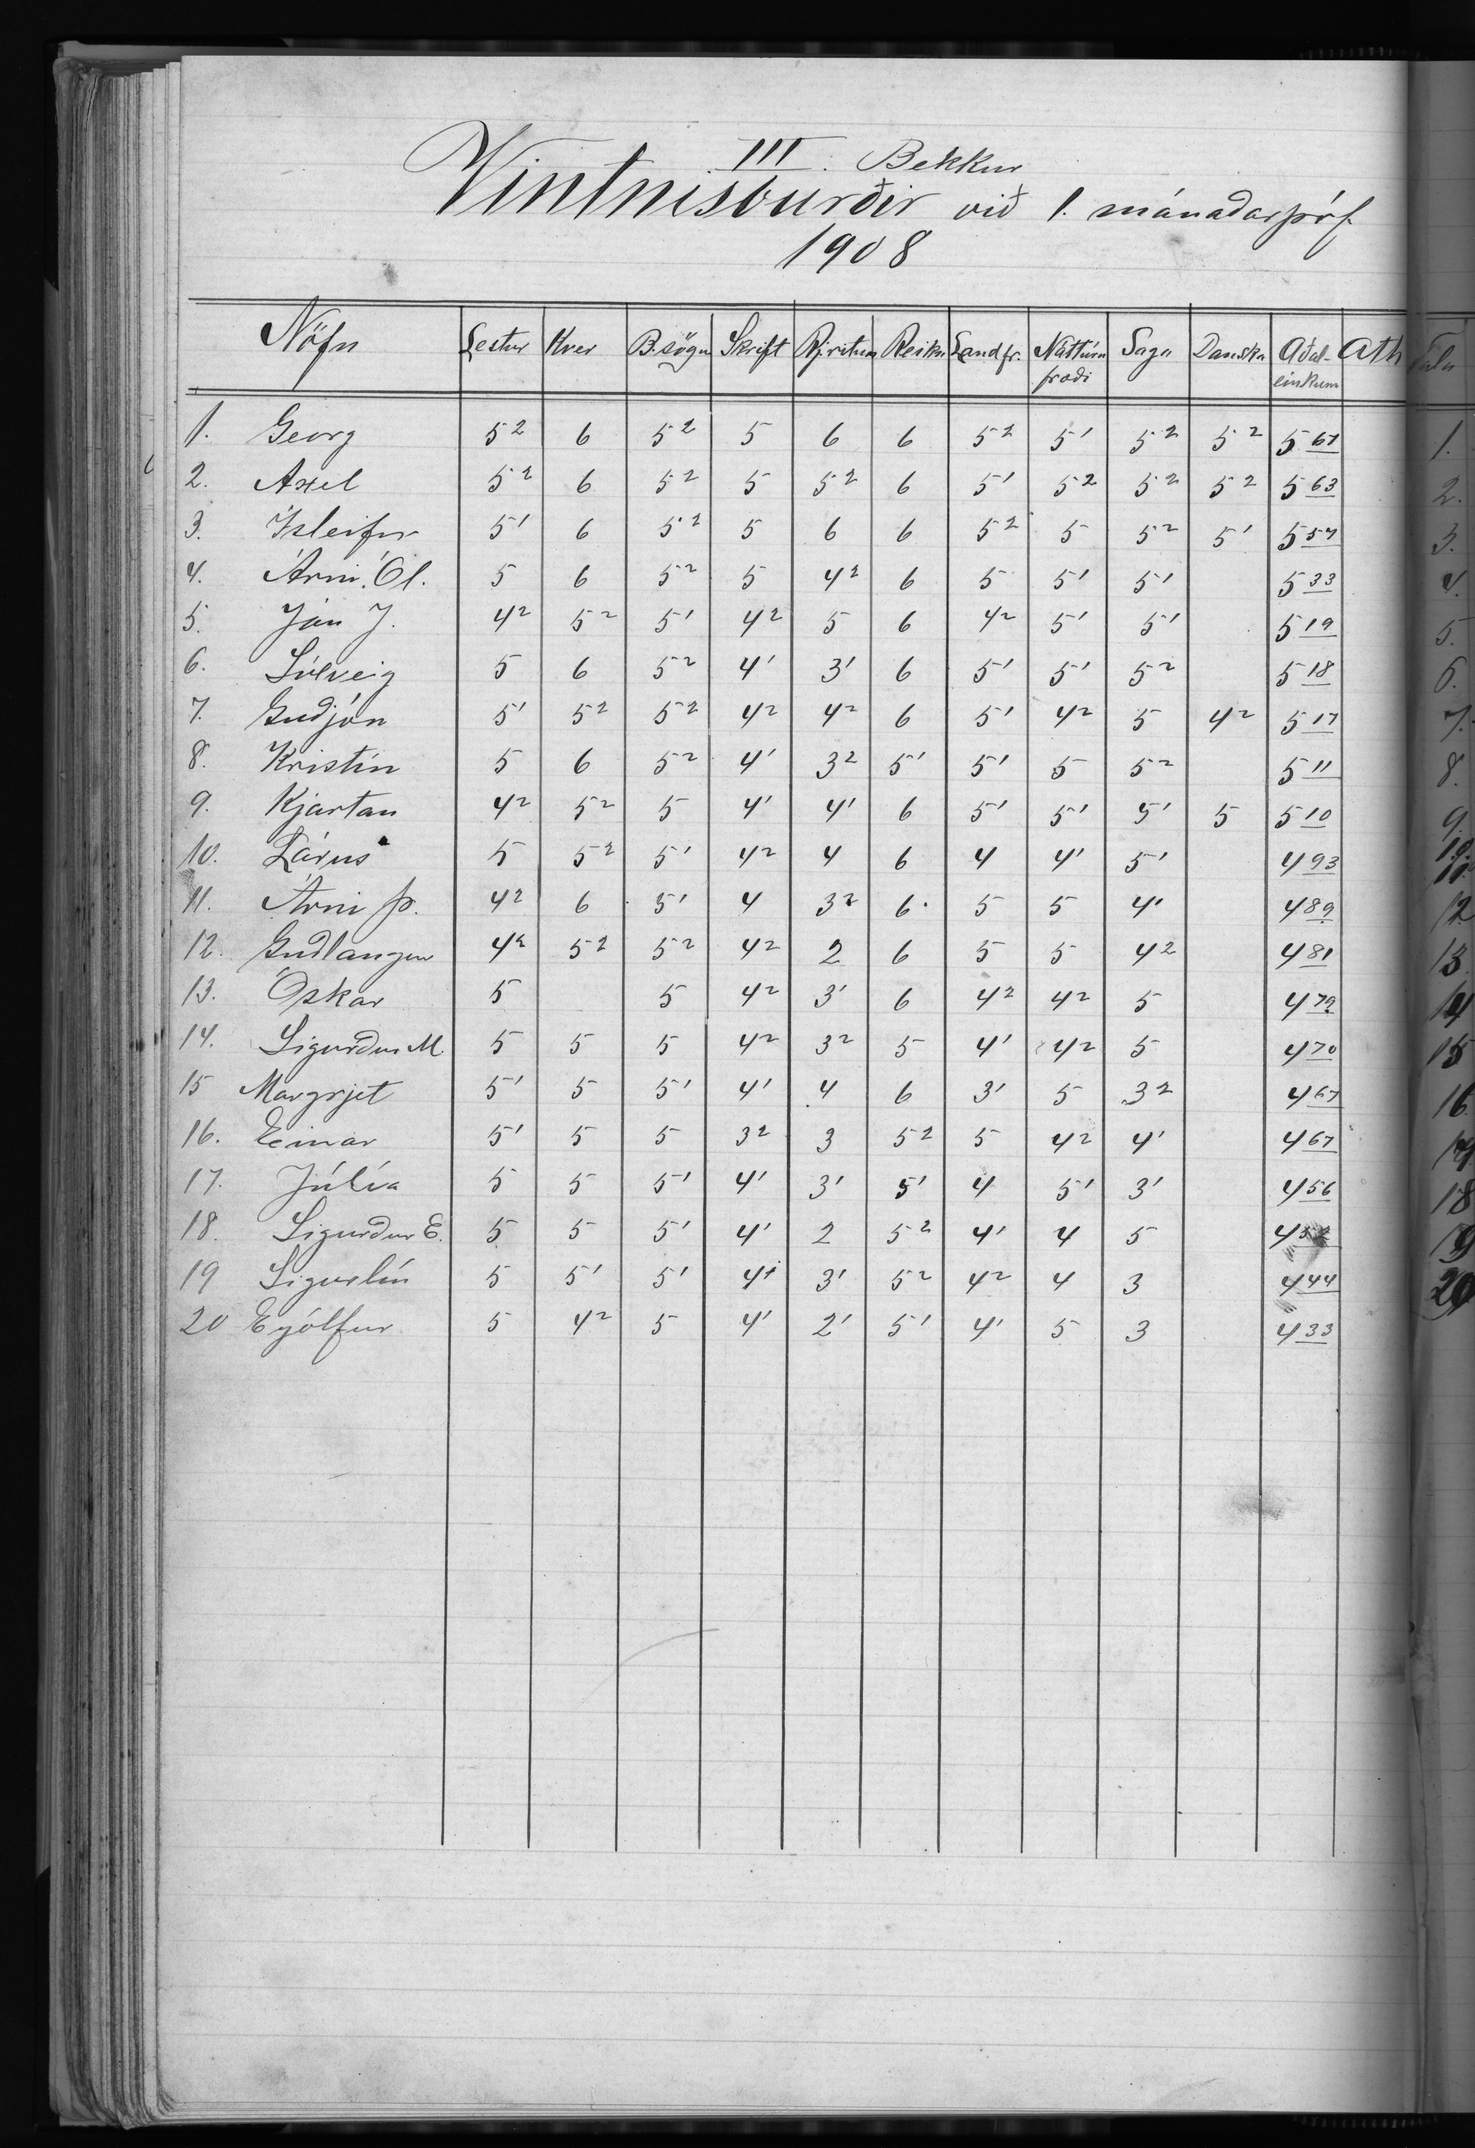 III. Bekkur
Vintnisburðir við 1. mánaðarpróf
1908
Nöfn Lestur Kver B.sögu Skrift Rjritun Reikn Landfr. Náttúru fræði Saga Danska Aðal-einkunn Ath
1. Georg 5² 6 5² 5 6 6 5² 5' 5² 5² 5 67
2. Axel 5² 6 5² 5 5² 6 5' 5² 5² 5² 5 63
3. Ísleifur 5' 6 5² 5 6 6 5² 5 5² 5' 5 57
4. Árni Ól. 5 6 5² 5 4² 6 5 5' 5' 5 33
5. Jón J. 4² 5² 5' 4² 5 6 4² 5' 5' 5 19
6. Sólveig 5 6 5² 4' 3' 6 5' 5' 5² 5 18
7. Guðjón 5' 5² 5² 4² 4² 6 5' 4² 5 4² 5 17
8. Kristín 5 6 5² 4' 3² 5' 5' 5 5² 5 11
9. Kjartan 4² 5² 5 4' 4' 6 5' 5' 5' 5 5 10
10. Lárus 5 5² 5' 4² 4 6 4 4' 5' 4 93
11. Árni Þ. 4² 6 5' 4 3² 6 5 5 4' 4 89
12. Guðlaugur 4² 5² 5² 4² 2 6 5 5 4² 4 81
13. Óskar 5 5 4² 3' 6 4² 4² 5 4 79
14. Sigurður M. 5 5 5 4² 3² 5 4' 4² 5 4 70
15 Margrjet 5' 5 5' 4' 4 6 3' 5 3² 4 67
16. Einar 5' 5 5 3² 3 5² 5 4² 4' 4 67
17. Júlía 5 5 5' 4' 3' 5' 4 5' 3' 4 56
18. Sigurður E. 5 5 5' 4' 2 5² 4' 4 5 4
19 Sigurlín 5 5' 5' 4' 3' 5² 4² 4 3 4 44
20 Eyólfur 5 4² 5 4' 2' 5' 4' 5 3 4 33